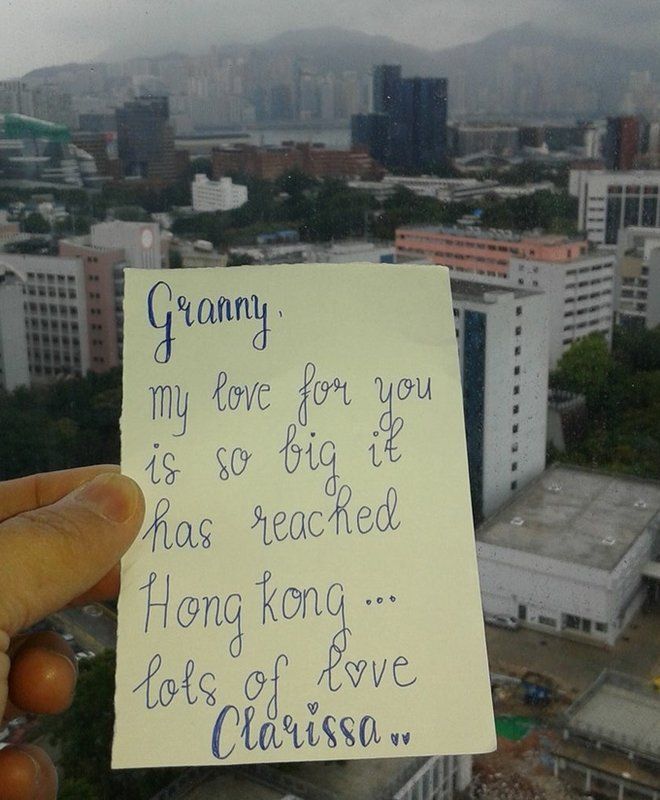 Granny,
my love for you
is so big it
has reached
Hong Kong ...
lots of l♡ve
Clarissa ♥♥